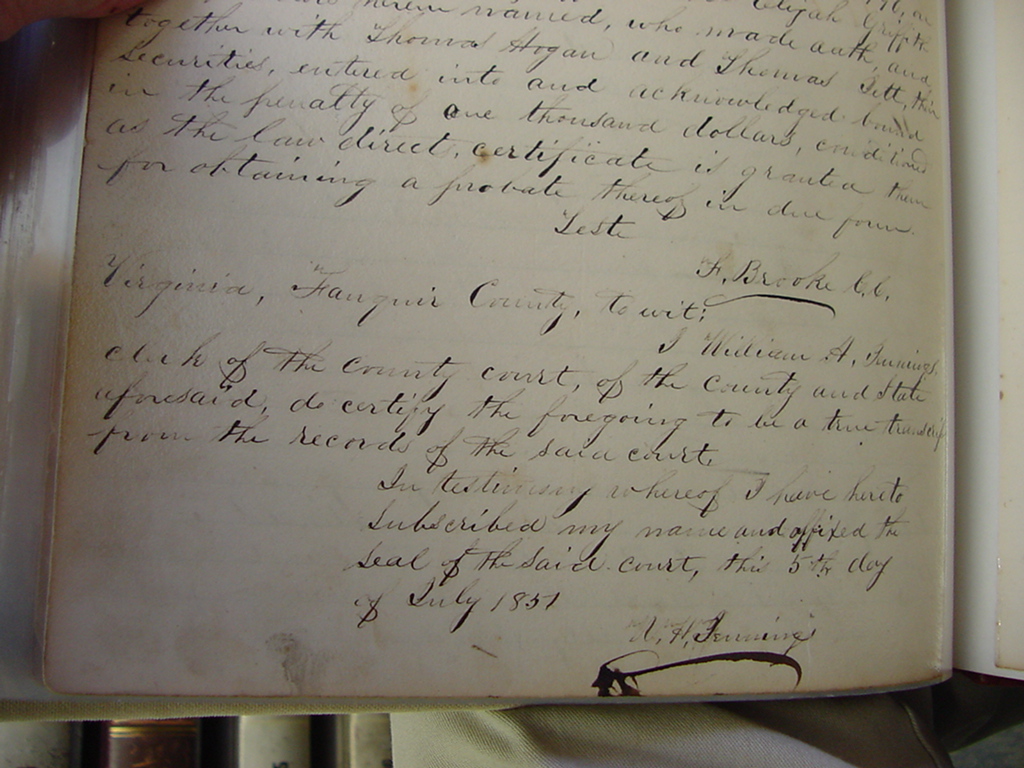 herein named, who made oath
together with Thomas Hogan and Thomas
securities, entered into and acknowledged bond
in the penalty of one thousand dollars, conditioned
as the law directs, certificate is granted them
for obtaining a probate thereof in due form.
Teste
F. Brooke C.C.
Virginia, Fauquier County, to wit;
I William A. Jennings
clerk of the county court, of the county and state
aforesaid, do certify the foregoing to be a true transcript
from the records of the said court.
In testimony whereof I have hereto
subscribed my name and affixed the
seal of the said court, this 5th day
of July 1851
Jennings